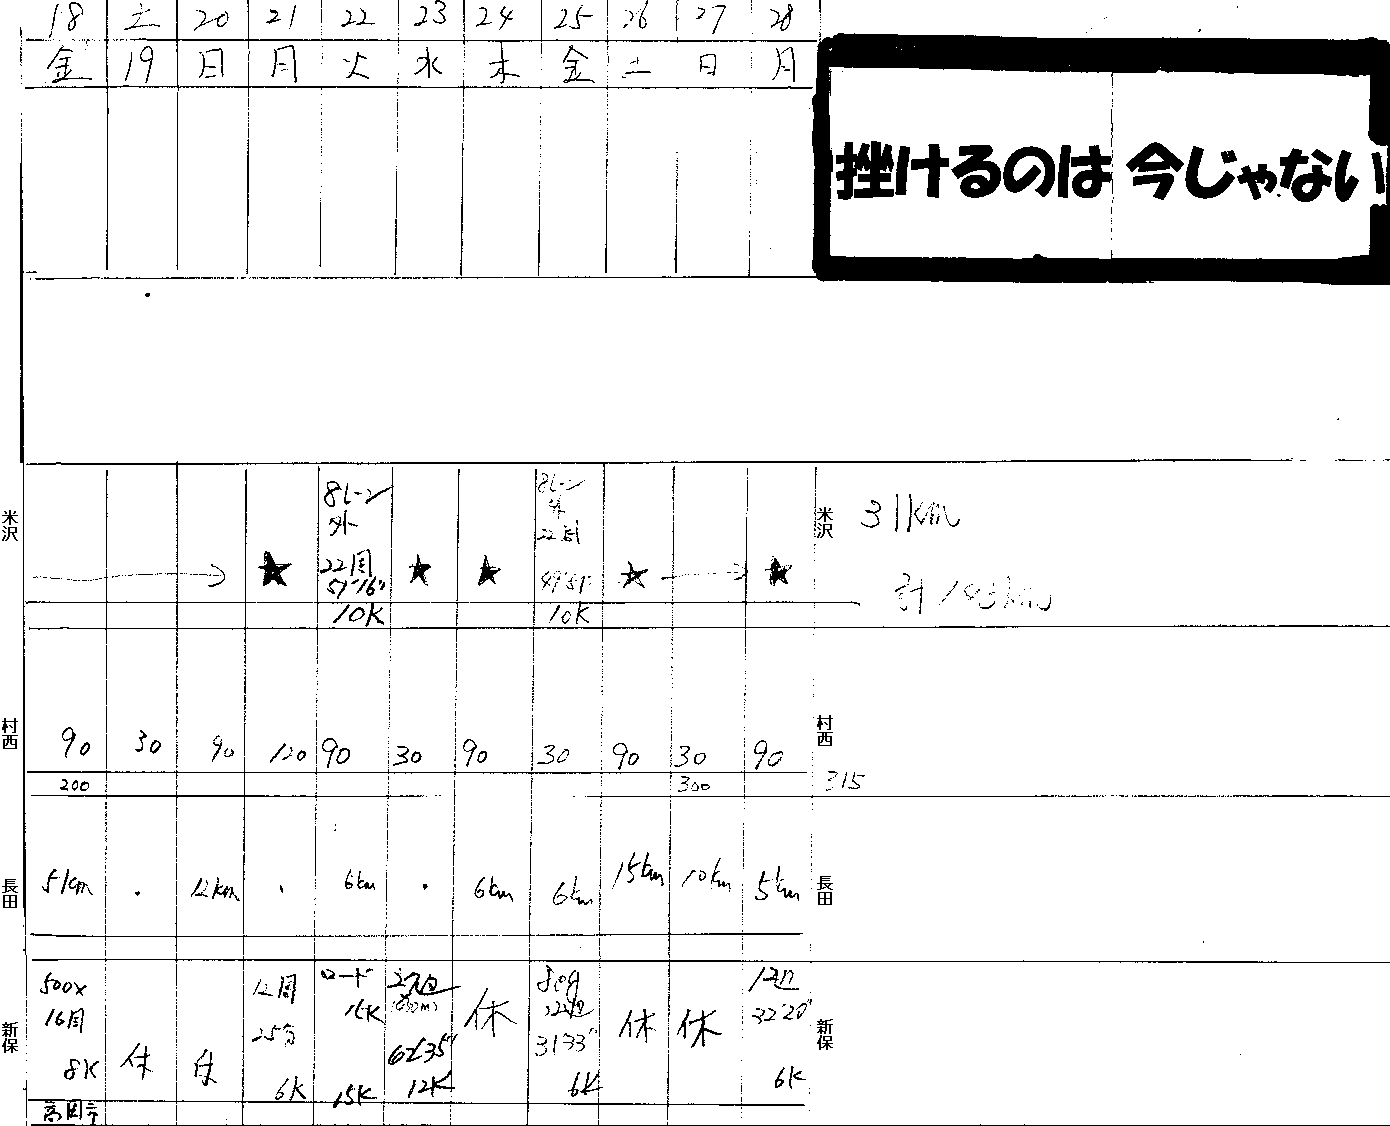 18 土 20 21 22 23 24 25 26 27 28
金 19 日 月 火 水 木 金 土 日 月
挫けるのは 今じゃない
米沢
→ ★
8レーン
外
22周
51'16"
10K
★ ★
8レーン
外
22周
49'51"
10K
★ → ★
米沢
31km
計 143km
村西
90 30 90 120 90 30 90 30 90 30 90
村西
200 300 315
長田
5km . 12km . 6km . 6km 6km 15km 10km 5km
長田
新保
500×
16周
8K
休
休
12周
25分
6K
ロード
15K
15K
62'35"
12K
休
Jog
31'33"
6K
休
休
12周
32'20"
6K
新保